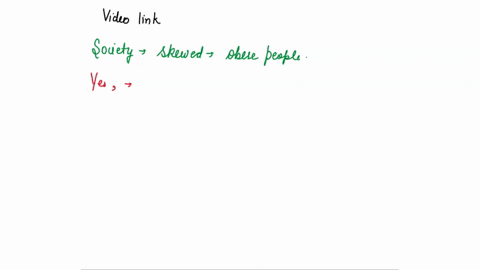 Video link
Society → skewed → obese people.
Yes, →